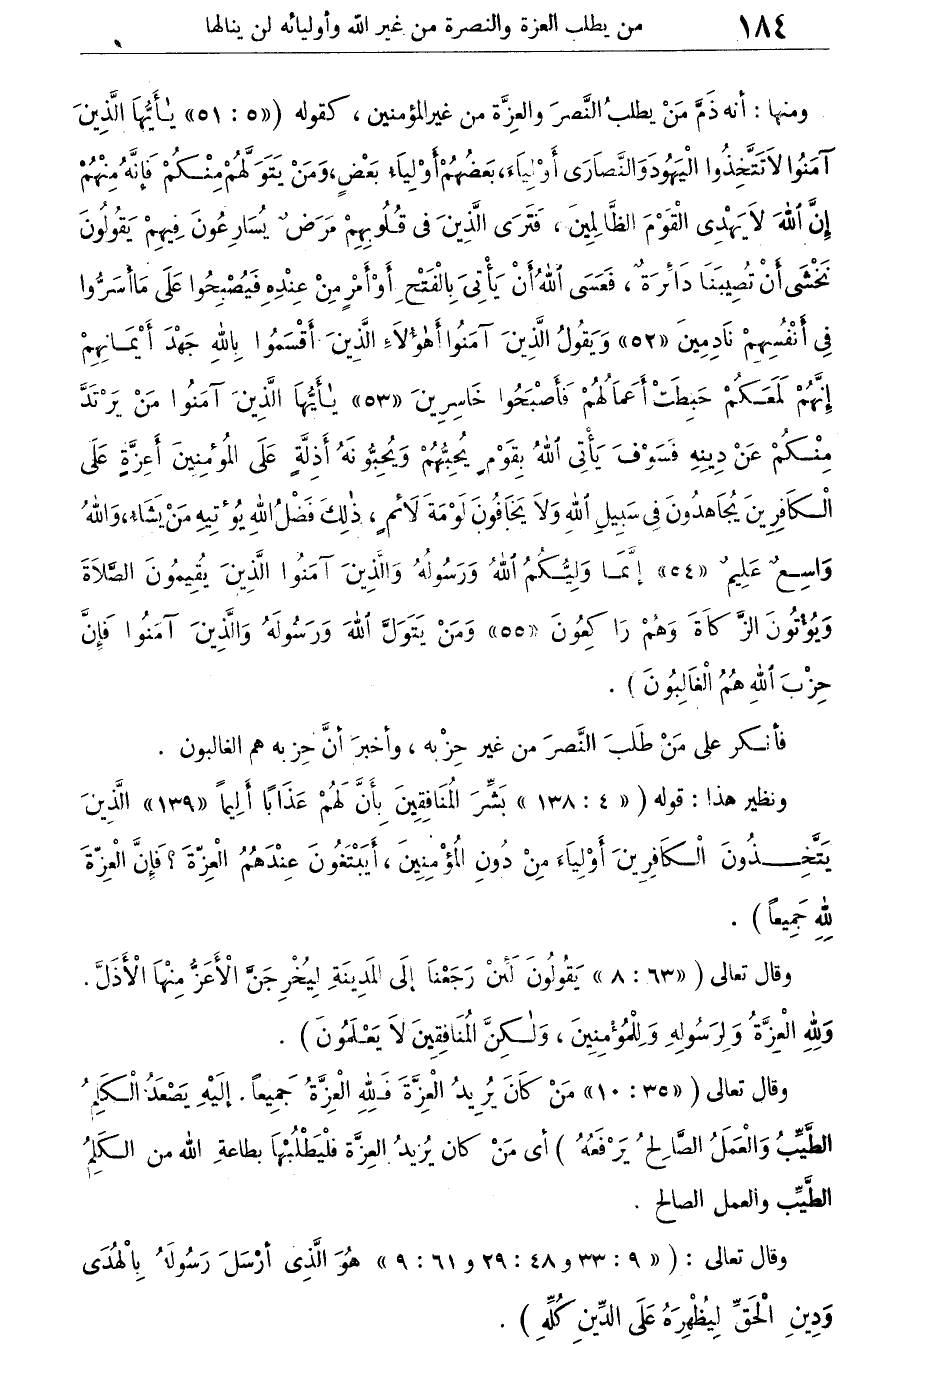 ١٨٤ من يطلب العزة والنصرة من غير الله وأوليائه لن ينالها
ومنها : أنه ذَمَّ مَنْ يطلبُ النَّصرَ والعِزَّة من غيرالمؤمنين ، كقوله («٥ : ٥١» يٰأَيُّهَا الَّذِينَ
آمَنُوا لاَتَتَّخِذُوا الْيَهُودَ وَالنَّصَارَى أَوْلِيَاءَ، بَعْضُهُمْ أَوْلِيَاءُ بَعْضٍ، وَمَنْ يَتَوَلَّهُمْ مِنْكُمْ فَإِنَّهُ مِنْهُمْ
إِنَّ اللهَ لاَ يَهْدِى الْقَوْمَ الظَّالِمِينَ ، فَتَرَى الَّذِينَ فى قُلُوبِهِمْ مَرَضٌ يُسَارِعُونَ فِيهِمْ يَقُولُونَ
نَخْشَى أَنْ تُصِيبَنَا دَائِرَةٌ ، فَعَسَى اللهُ أَنْ يَأْتِىَ بِالْفَتْحِ أَوْ أَمْرٍ مِنْ عِنْدِهِ فَيُصْبِحُوا عَلَى مَا أَسَرُّوا
فِى أَنْفُسِهِمْ نَادِمِينَ «٥٢» وَيَقُولُ الَّذِينَ آمَنُوا أَهٰؤُلاَءِ الَّذِينَ أَقْسَمُوا بِاللهِ جَهْدَ أَيْمَانِهِمْ
إِنَّهُمْ لَمَعَكُمْ حَبِطَتْ أَعْمَالُهُمْ فَأَصْبَحُوا خَاسِرِينَ «٥٣» يٰأَيُّهَا الَّذِينَ آمَنُوا مَنْ يَرْتَدَّ
مِنْكُمْ عَنْ دِينِهِ فَسَوْفَ يَأْتِى اللهُ بِقَوْمٍ يُحِبُّهُمْ وَيُحِبُّونَهُ أَذِلَّةٍ عَلَى الْمُؤْمِنِينَ أَعِزَّةٍ عَلَى
الْكَافِرِينَ يُجَاهِدُونَ فِى سَبِيلِ اللهِ وَلاَ يَخَافُونَ لَوْمَةَ لاَئِمٍ ، ذٰلِكَ فَضْلُ اللهِ يُؤْتِيهِ مَنْ يَشَاءُ، وَاللهُ
وَاسِعٌ عَلِيمٌ «٥٤» إِنَّمَا وَلِيُّكُمُ اللهُ وَرَسُولُهُ وَالَّذِينَ آمَنُوا الَّذِينَ يُقِيمُونَ الصَّلاَةَ
وَيُؤْتُونَ الزَّكَاةَ وَهُمْ رَاكِعُونَ «٥٥» وَمَنْ يَتَوَلَّ اللهَ وَرَسُولَهُ وَالَّذِينَ آمَنُوا فَإِنَّ
حِزْبَ اللهِ هُمُ الْغَالِبُونَ ) .
فأنكر على مَنْ طَلَبَ النَّصرَ من غير حِزْبه ، وأخبرَ أنَّ حِزبه هم الغالبون .
ونظير هذا : قوله ( «٤ : ١٣٨ » بَشِّرِ الْمُنَافِقِينَ بِأَنَّ لَهُمْ عَذَابًا أَلِيماً «١٣٩» الَّذِينَ
يَتَّخِذُونَ الْكَافِرِينَ أَوْلِيَاءَ مِنْ دُونِ الْمُؤْمِنِينَ ، أَيَبْتَغُونَ عِنْدَهُمُ الْعِزَّةَ ؟ فَإِنَّ الْعِزَّةَ
لِلهِ جَمِيعاً ) .
وقال تعالى ( «٦٣ : ٨ » يَقُولُونَ لَئِنْ رَجَعْنَا إِلَى الْمَدِينَةِ لَيُخْرِجَنَّ الْأَعَزُّ مِنْهَا الْأَذَلَّ .
وَلِلهِ الْعِزَّةُ وَلِرَسُولِهِ وَلِلْمُؤْمِنِينَ ، وَلٰكِنَّ الْمُنَافِقِينَ لاَ يَعْلَمُونَ ) .
وقال تعالى ( «٣٥ : ١٠» مَنْ كَانَ يُرِيدُ الْعِزَّةَ فَلِلهِ الْعِزَّةُ جَمِيعاً . إِلَيْهِ يَصْعَدُ الْكَلِمُ
الطَّيِّبُ وَالْعَمَلُ الصَّالِحُ يَرْفَعُهُ ) أى مَنْ كان يُريدُ العِزَّة فلْيَطْلُبْهَا بطاعةِ الله من الكَلِمُ
الطَّيِّب والعمل الصالح .
وقال تعالى : ( « ٩ : ٣٣ و ٤٨ : ٢٩ و ٦١ : ٩ » هُوَ الَّذِى أَرْسَلَ رَسُولَهُ بِالْهُدَى
وَدِينِ الْحَقِّ لِيُظْهِرَهُ عَلَى الدِّينِ كُلِّهِ ) .